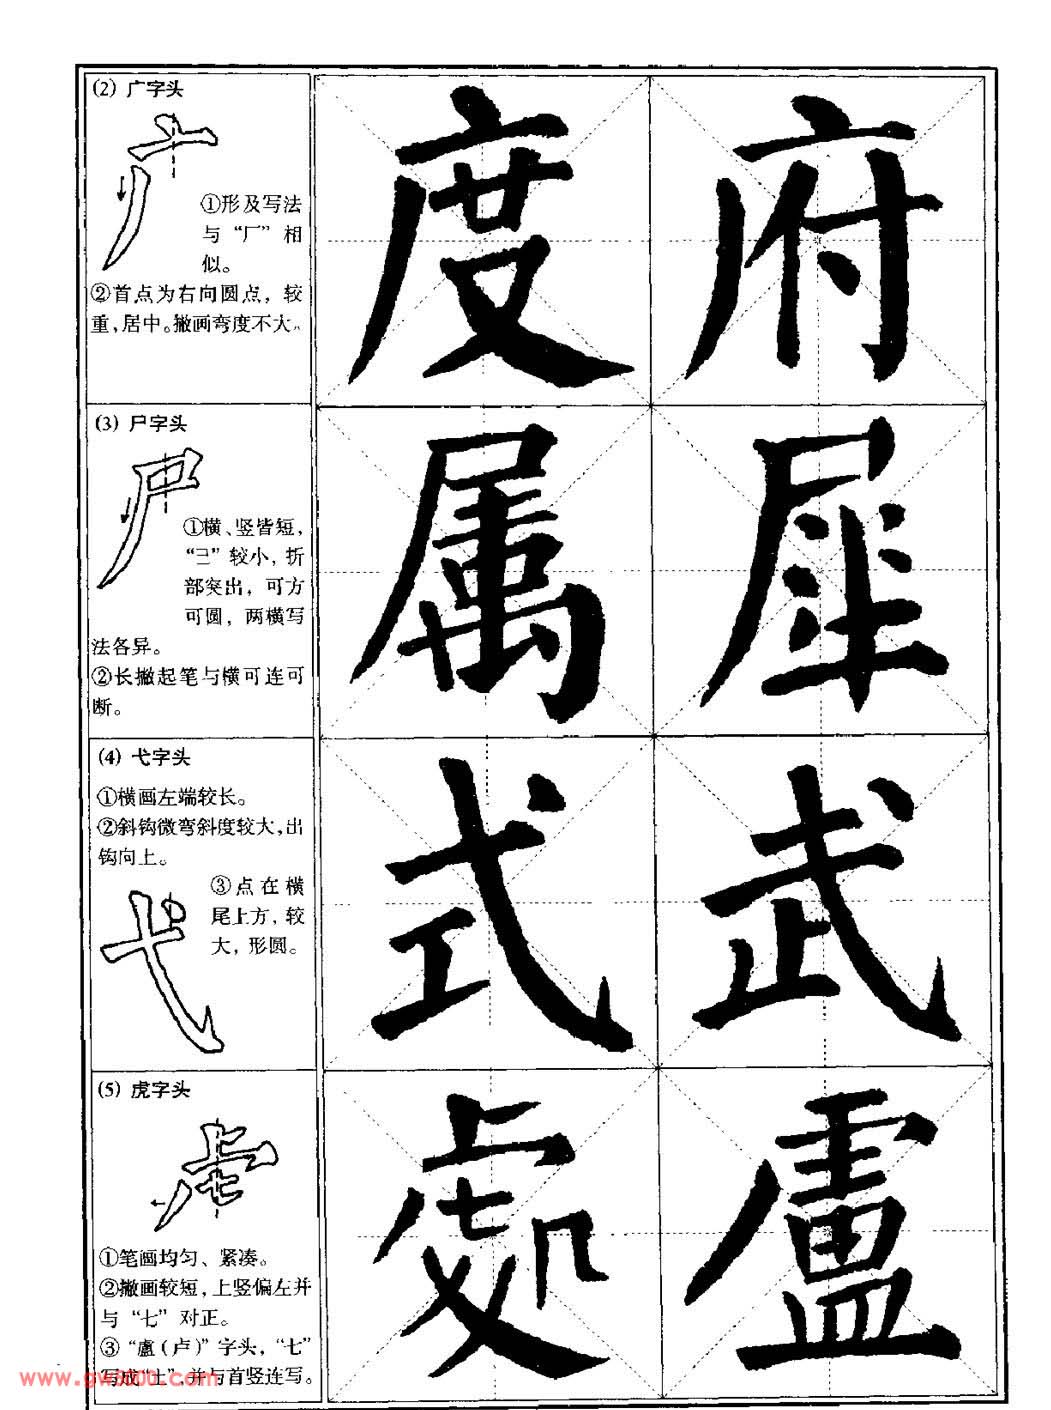 (2) 广字头
①形及写法
与“厂”相
似。
②首点为右向圆点，较
重，居中。撇画弯度不大。
度 府
(3) 尸字头
①横、竖皆短，
较小，折
部突出，可方
可圆，两横写
法各异。
②长撇起笔与横可连可
断。
属 犀
(4) 弋字头
①横画左端较长。
②斜钩微弯斜度较大，出
钩向上。
③点在横
尾上方，较
大，形圆。
式 武
(5) 虎字头
①笔画均匀、紧凑。
②撇画较短，上竖偏左并
与“七”对正。
③“盧(卢)”字头，“七”
写成“土”，并与首竖连写。
處 盧
www.gw300.com